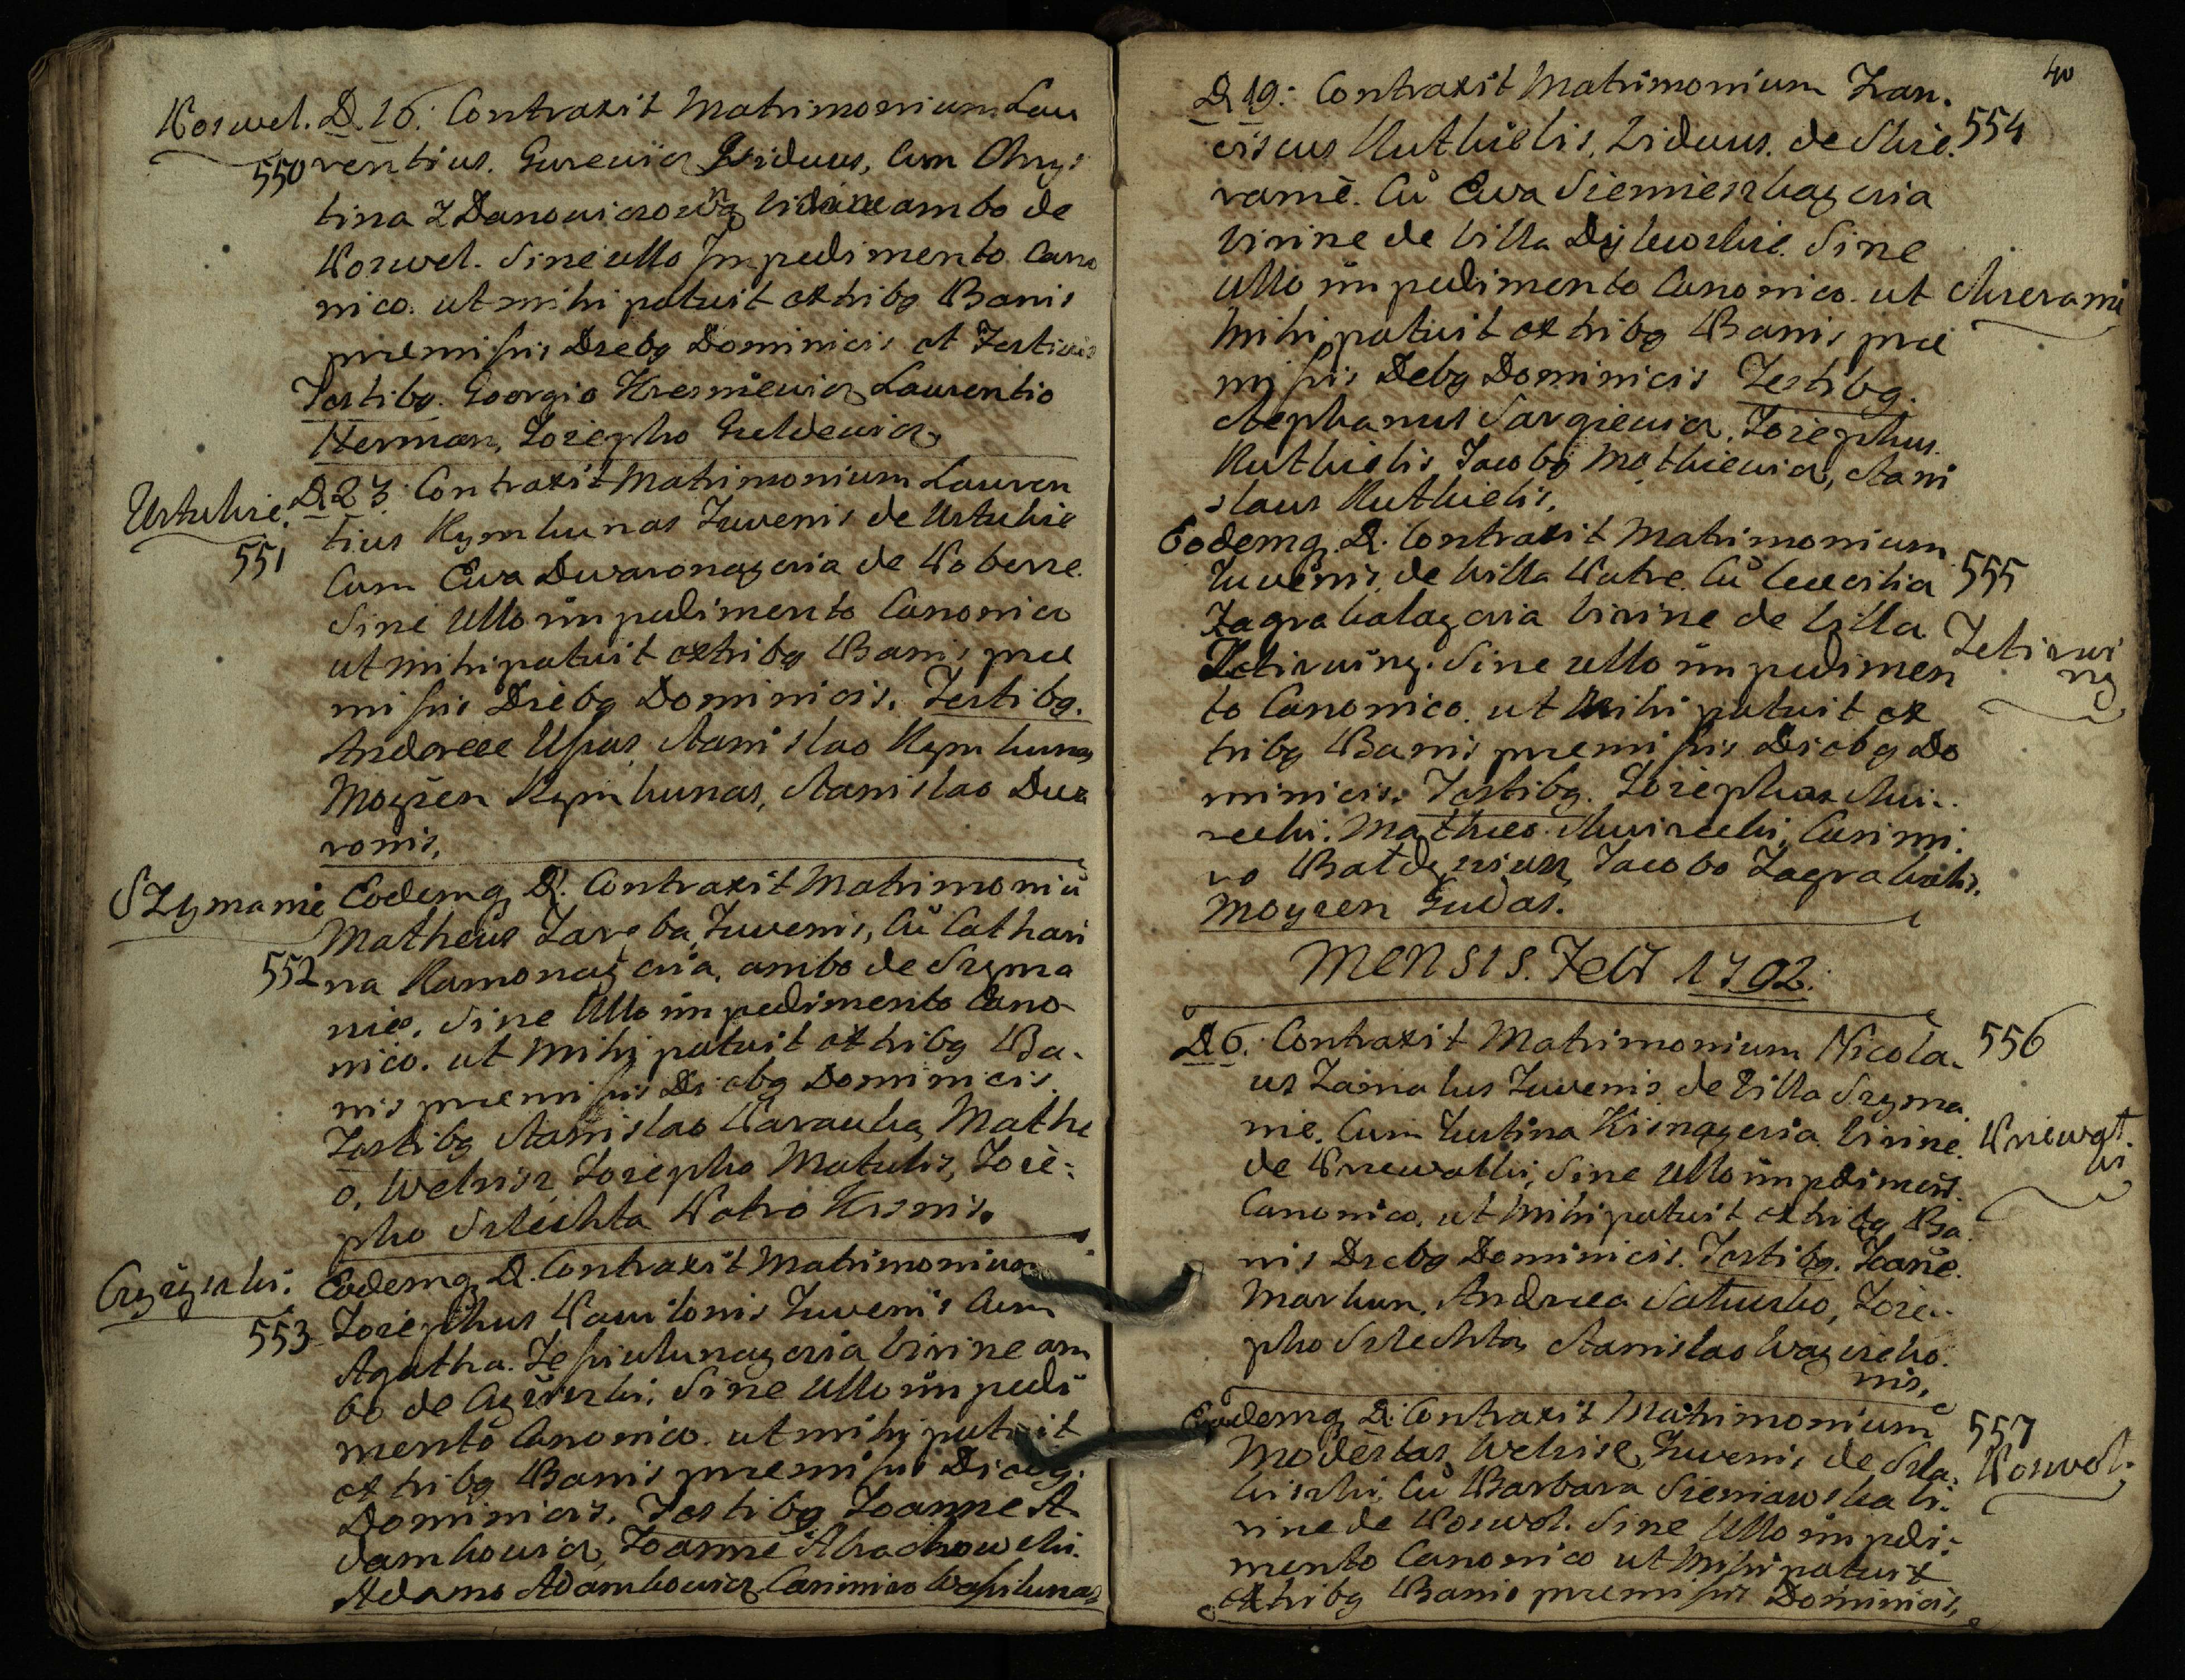 Koswel. D. 16. Contraxit Matrimonium Lau
550 rentius. Gurewicz Viduus, Cum Chrys
tina ZDanowiczowną Vidua ambo de
Koswel. Sine ullo Impedimento Cano
nico. ut mihi patuit ex tribq Banis
premissis Diebq Dominicis et Festivis
Testibq. Georgio Kresniewicz Laurentio
Herman, Josepho Guldewicz,
Ustukie. D. 23. Contraxit Matrimonium Lauren
551 tius Rymkunas Juvenis de Ustukie
Cum Ewa Dwaronayeria de Woberze.
Sine Ullo impedimento Canonico
ut mihi patuit ex tribq Banis pre
missis Diebq Dominicis. Testibq.
Andreee Upas, Stanislao Rymkunas
Moyzen Rymkunas, Stanislao Dwa
ronis,
SZymanie Eodemq D. Contraxit Matrimoniū
Matheus Zareba, Juvenis, Cū Cathari
552 na Ramonayeria, ambo de Szyma
nie. Sine Ullo impedimento Cano
nico. ut Mihi patuit ex tribq Ba.
nis premissis Diebq Dominicis
Testibq Stanislao Karaulią Mathe
o. Welsisz Josepho Matulis, Jose:
pho Szlechta Katro Krsmis.
Czyzyszki. Eodemq D. Contraxit Matrimonium
553 Josephus Kawilonis Juvenis Cum
Agatha. Jessiulunayeria Virine am
bo de Czyziszki. Sine Ullo impedi
mento Canonico. ut mihi patuit
ex tribq Banis premissis Diebq.
Dominicis. Testibq Joanne A.
damkowicz, Joanne Strachowski.
Adamo Adamkowicz Casimiro Wassilunas
40
D. 19. Contraxit Matrimonium Fran.
ciscus Rutkielis, Viduus. de Skie. 554
ramē. Cū Ewa Siemieszkayeria
Virine de Villa Dylewskie. Sine
Ullo impedimento Canonico. ut Skierami
Mihi patuit ex tribq Banis pre
missis Diebq Dominicis Testibq.
Stephanus Sargiewicz, Josephus.
Rutkielis Jacobq Mathiewicz, Stani
slaus Rutkielis,
Eodemq. D. Contraxit Matrimonium
Juvenis, de Villa Katre. Cū Cecilia 555
Zagrabalayeria Virine de Villa
Jetiruing. Sine ullo impedimen Jetirui
ng
to Canonico. ut Mihi patuit ex
tribq Banis premissis Diebq Do
minicis. Testibq. Josephus
Matheo Casimi.
ro Jacobo Zagrabalis.
Moyzen Gudas.
MENSIS. Feb 1792.
D. 6. Contraxit Matrimonium Nicola. 556
us Zamalus Juvenis de Villa Szyma
nie. Cum Justina Kisnayeria Virine. Kniewat.
ki
de Kniewatki, Sine Ullo impdiment.
Canonico. ut Mihi patuit ex tribq Ba
nis Diebq Dominicis. Testibq. Joane.
Markun, Andrea Satusko, Jose..
pho Szlechta, Stanislao
nis,
Eodemq D. Contraxit Matrimonium 557
Modestas, Welsisz, Juvenis de Szla. Koswol.
kiszki Cū Barbara Sieniawska Vi:
rine de Koswol. Sine Ullo impdi:
mento Canonico ut Mihi patuit
ex tribq Banis premissis Dominicis,